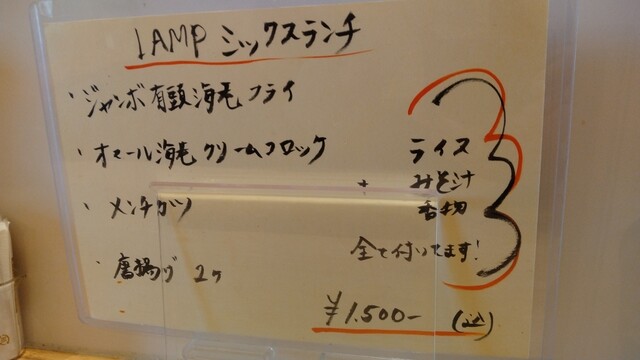 LAMP ミックスランチ
・ジャンボ有頭海老フライ
・オマール海老クリームコロッケ
・メンチカツ
・唐揚げ 2ヶ
ライス
みそ汁
香物
全て付いてます!
¥1.500- (込)